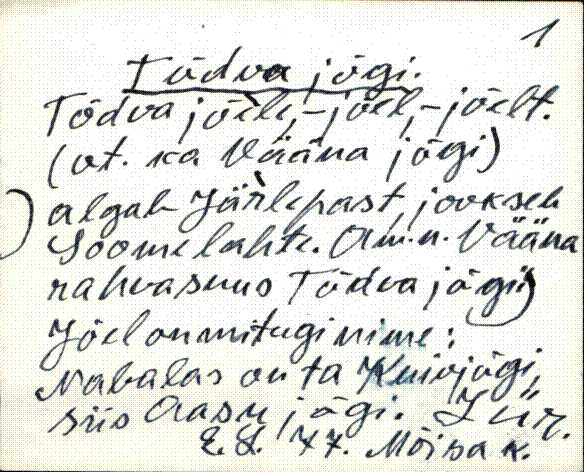 1
Tõdva jõgi.
Tõdva jõele, -jõel, -jõelt.
(vt. ka Vääna jõgi)
algab Järlepast, jookseb
Soomelahte. Am.n. Vääna
rahvasuus Tõdva jõgi)
Jõel on mitugi nime:
Nabalas on ta Kuivjõgi,
siis Aasu jõgi. Jür.
Mõisa k.